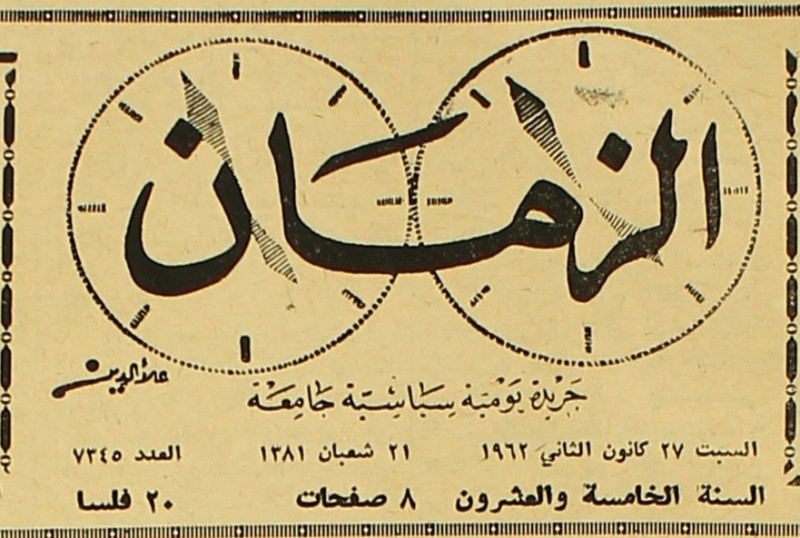 الزمان
علاء الدين
جريدة يومية سياسية جامعة
السبت ٢٧ كانون الثاني ١٩٦٢ ٢١ شعبان ١٣٨١ العدد ٧٣٤٥
السنة الخامسة والعشرون ٨ صفحات ٢٠ فلسا